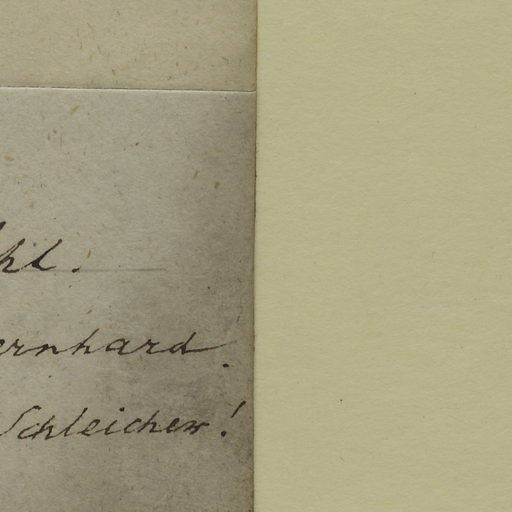 hl.
ernhard.
Schleicher!